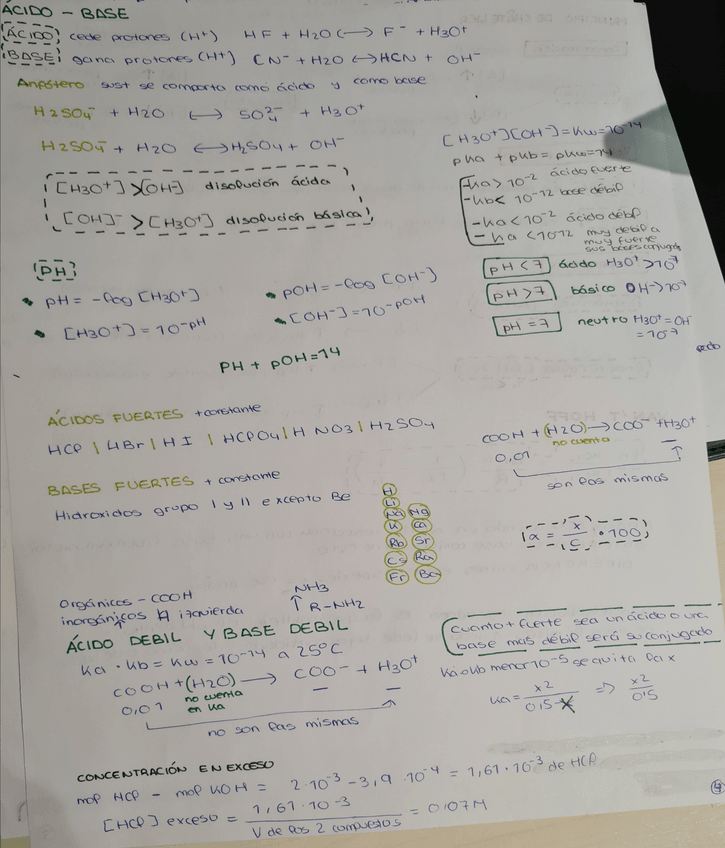 ÁCIDO – BASE
ÁCIDO: cede protones (H⁺) HF + H2O ⟷ F⁻ + H3O⁺
BASE: gana protones (H⁺) CN⁻ + H2O ⟷ HCN + OH⁻
Anfótero sust se comporta como ácido y como base
H2SO4⁻ + H2O ⟷ SO4²⁻ + H3O⁺
H2SO4⁻ + H2O ⟷ H2SO4 + OH⁻
[H3O⁺] > [OH⁻] disolución ácida
[OH]⁻ > [H3O⁺] disolución básica
[H3O⁺][OH⁻] = Kw = 10⁻¹⁴
pka + pkb = pkw = 14
- ka > 10⁻² ácido fuerte
- kb < 10⁻¹² base débil
- ka < 10⁻² ácido débil
- ka < 10⁻¹² muy debil a
muy fuerte
sus bases conjugas
PH
pH = -log [H3O⁺]
pOH = -log [OH⁻]
[H3O⁺] = 10⁻ᵖᴴ
[OH⁻] = 10⁻ᵖᴼᴴ
PH + pOH = 14
pH < 7 ácido H3O⁺ > 10⁻⁷
pH > 7 básico OH⁻ > 10⁻⁷
pH = 7 neutro H3O⁺ = OH⁻
= 10⁻⁷
ÁCIDOS FUERTES + constante
HCl | HBr | HI | HClO4 | H NO3 | H2SO4
BASES FUERTES + constante
Hidroxidos grupo I y II excepto Be
H
Li
Na Mg
K Ca
Rb Sr
Cs Ra
Fr Ba
COOH + (H2O) → COO⁻ + H3O⁺
no cuenta
0,01
son las mismas
α = x/c · 100
Orgánicos – COOH
inorgánicos H izquierda
NH3
↑ R-NH2
ÁCIDO DEBIL Y BASE DEBIL
Ka · Kb = Kw = 10⁻¹⁴ a 25ºC
COOH + (H2O) → COO⁻ + H3O⁺
0,01 no cuenta
en Ka
no son las mismas
cuanto + fuerte sea un ácido o una
base mas débil será su conjugado
Ka o Kb menor 10⁻⁵ se quita la x
Ka = x²/0,5-x ⇒ x²/0,5
CONCENTRACIÓN EN EXCESO
mol HCl – mol KOH = 2·10⁻³ – 3,9·10⁻⁴ = 1,61·10⁻³ de HCl
[HCl] exceso = 1,61·10⁻³ / V de los 2 compuestos = 0,07M